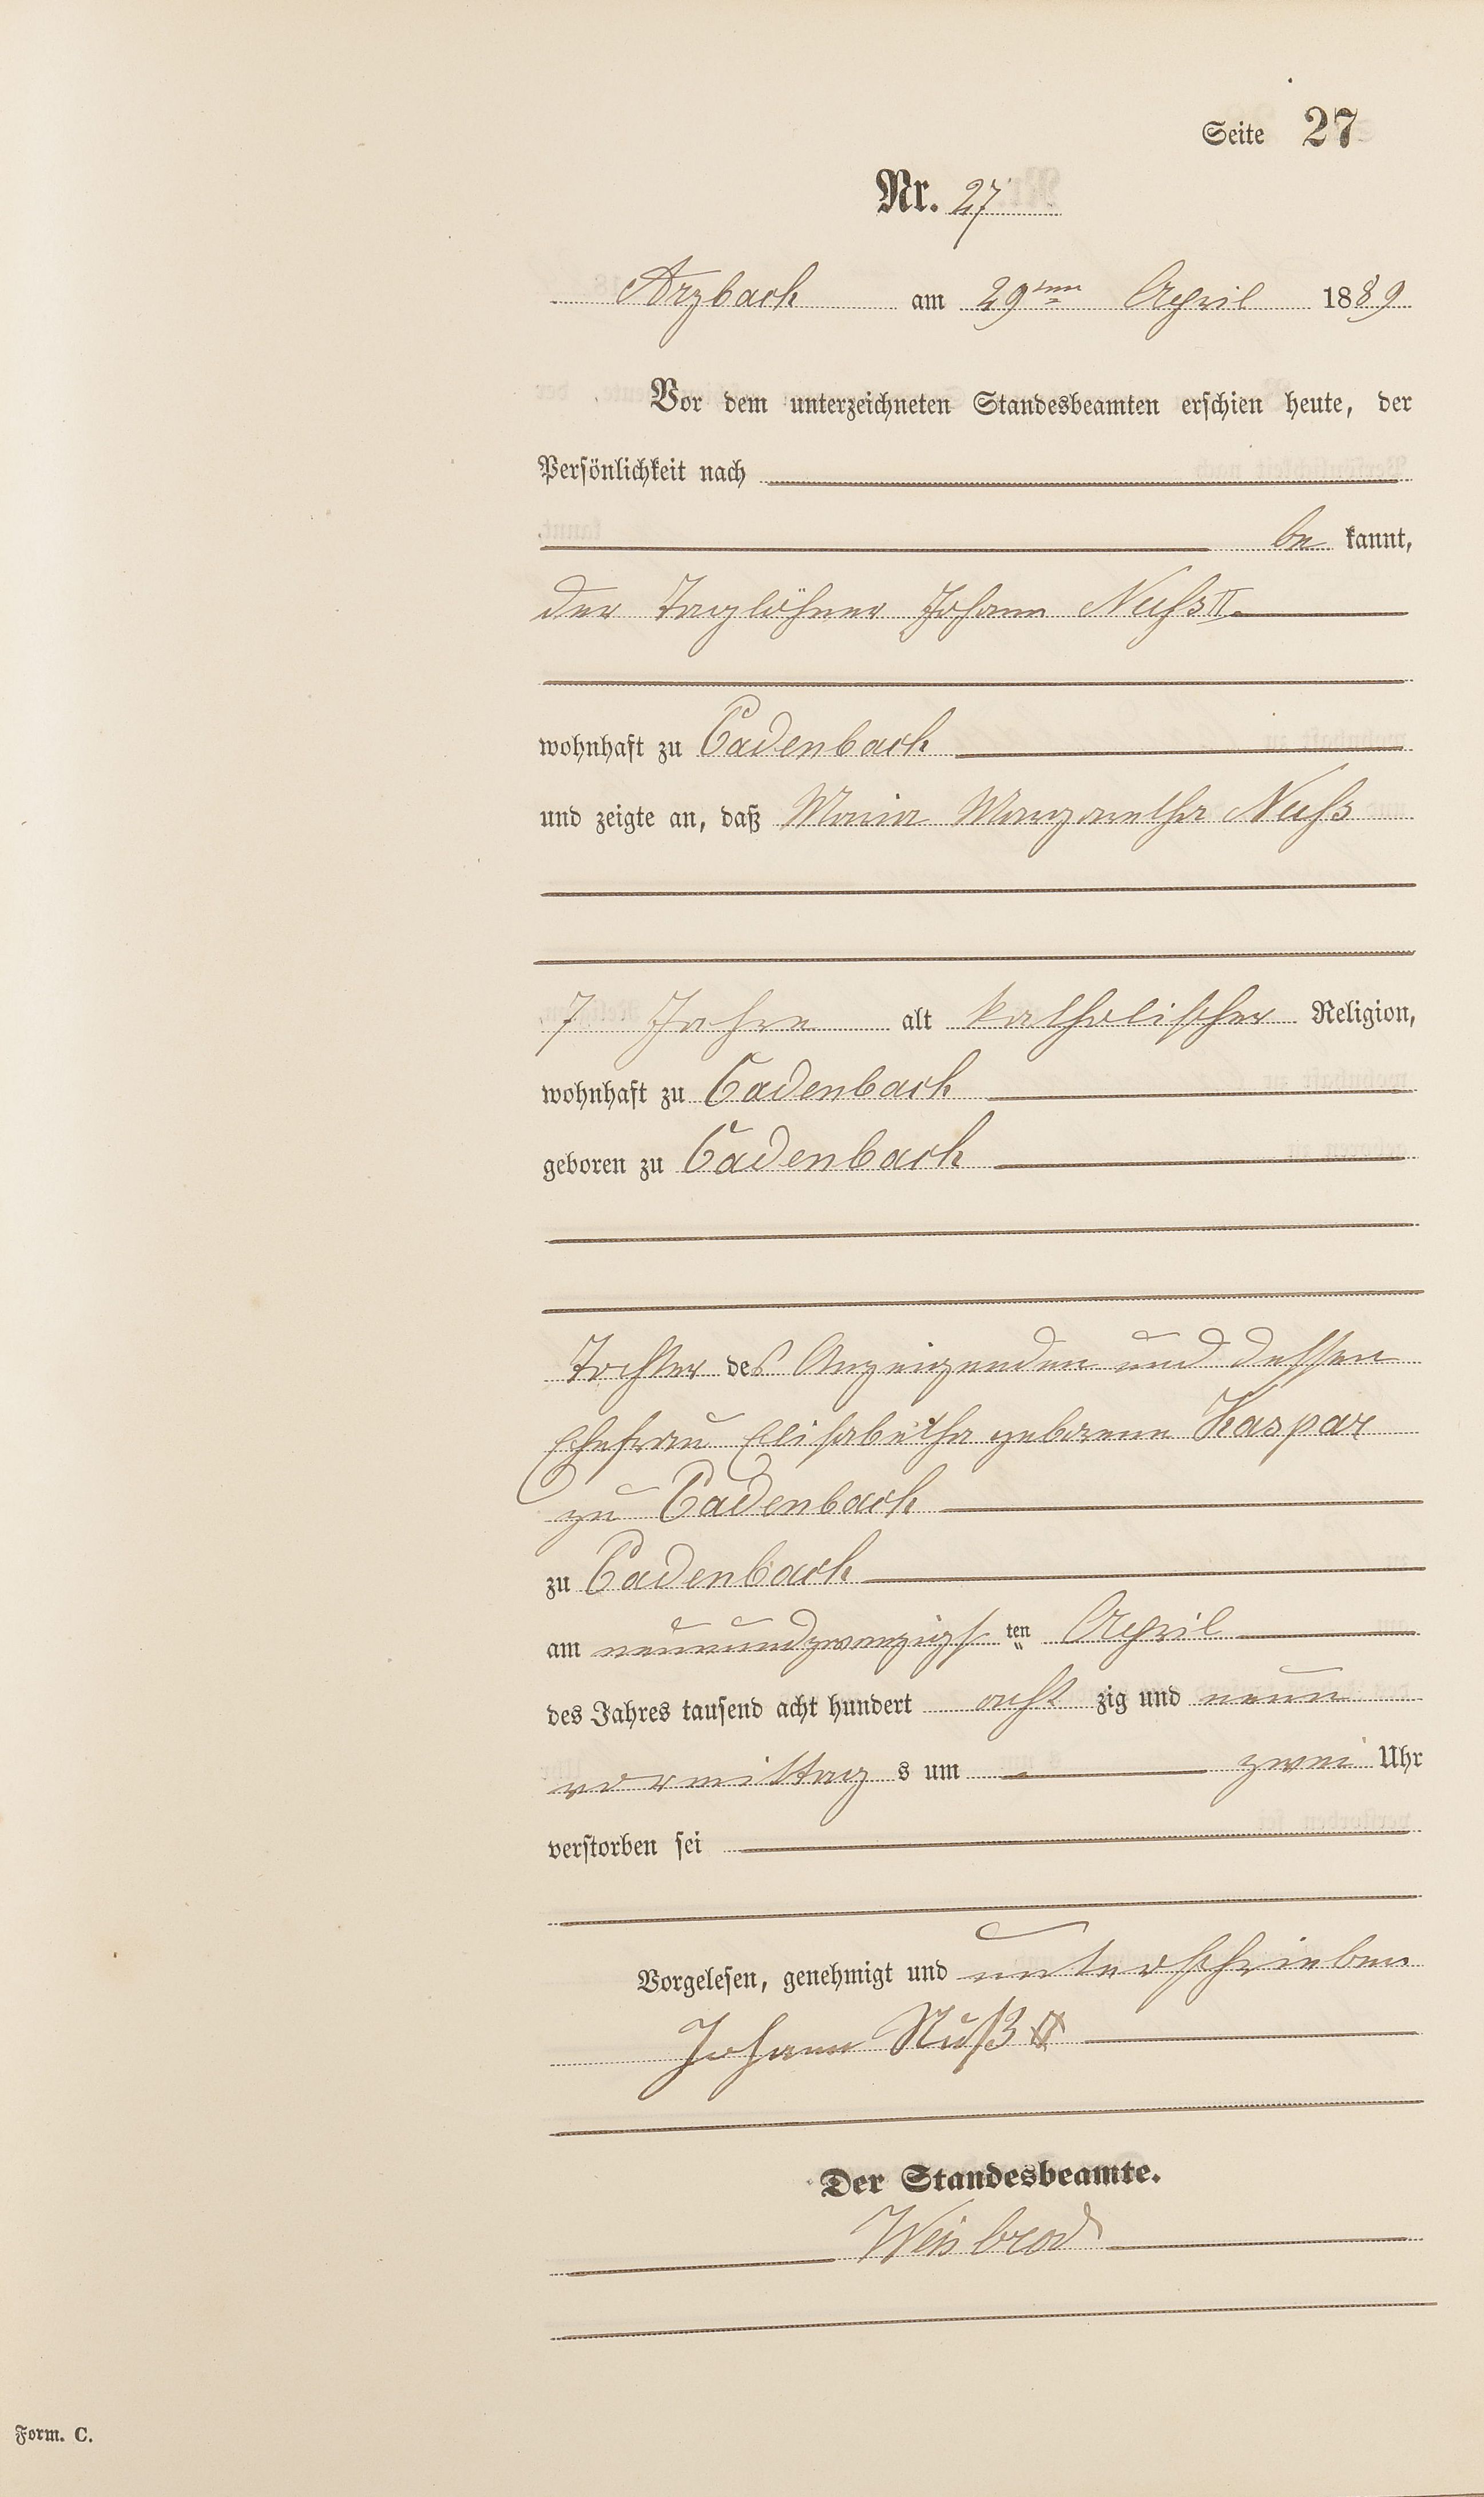 Seite 27
Nr. 27
Arzbach am 29ten April 1889
Vor dem unterzeichneten Standesbeamten erschien heute, der
Persönlichkeit nach
be kannt,
der Taglöhner Johann Nuß II.
wohnhaft zu Cadenbach
und zeigte an, daß Maria Margaretha Nuß
7 Jahre alt katholischer Religion,
wohnhaft zu Cadenbach
geboren zu Cadenbach
Tochter des Anzeigenden und dessen
Ehefrau Elisabetha geborene Kaspar
zu Cadenbach
zu Cadenbach
am neunundzwanzigs ten April
des Jahres tausend acht hundert acht zig und neun
vormittag s um zwei Uhr
verstorben sei
Vorgelesen, genehmigt und unterschrieben
Johann Nuß II
Der Standesbeamte.
Weisbrod
Form. C.